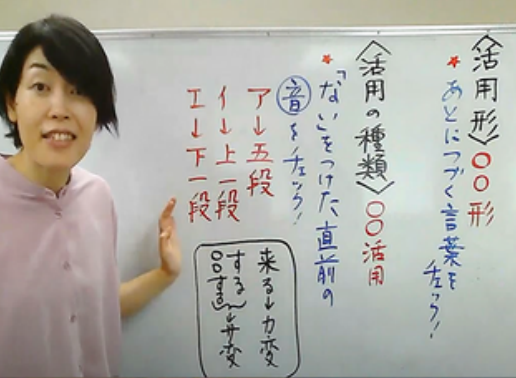 〈活用形〉〇〇形
★あとにつづく言葉をチェック!
〈活用の種類〉〇〇活用
★「ない」をつけた直前の
音をチェック!
ア→五段
イ→上一段
エ→下一段
来る→カ変
する
〇〇する→サ変